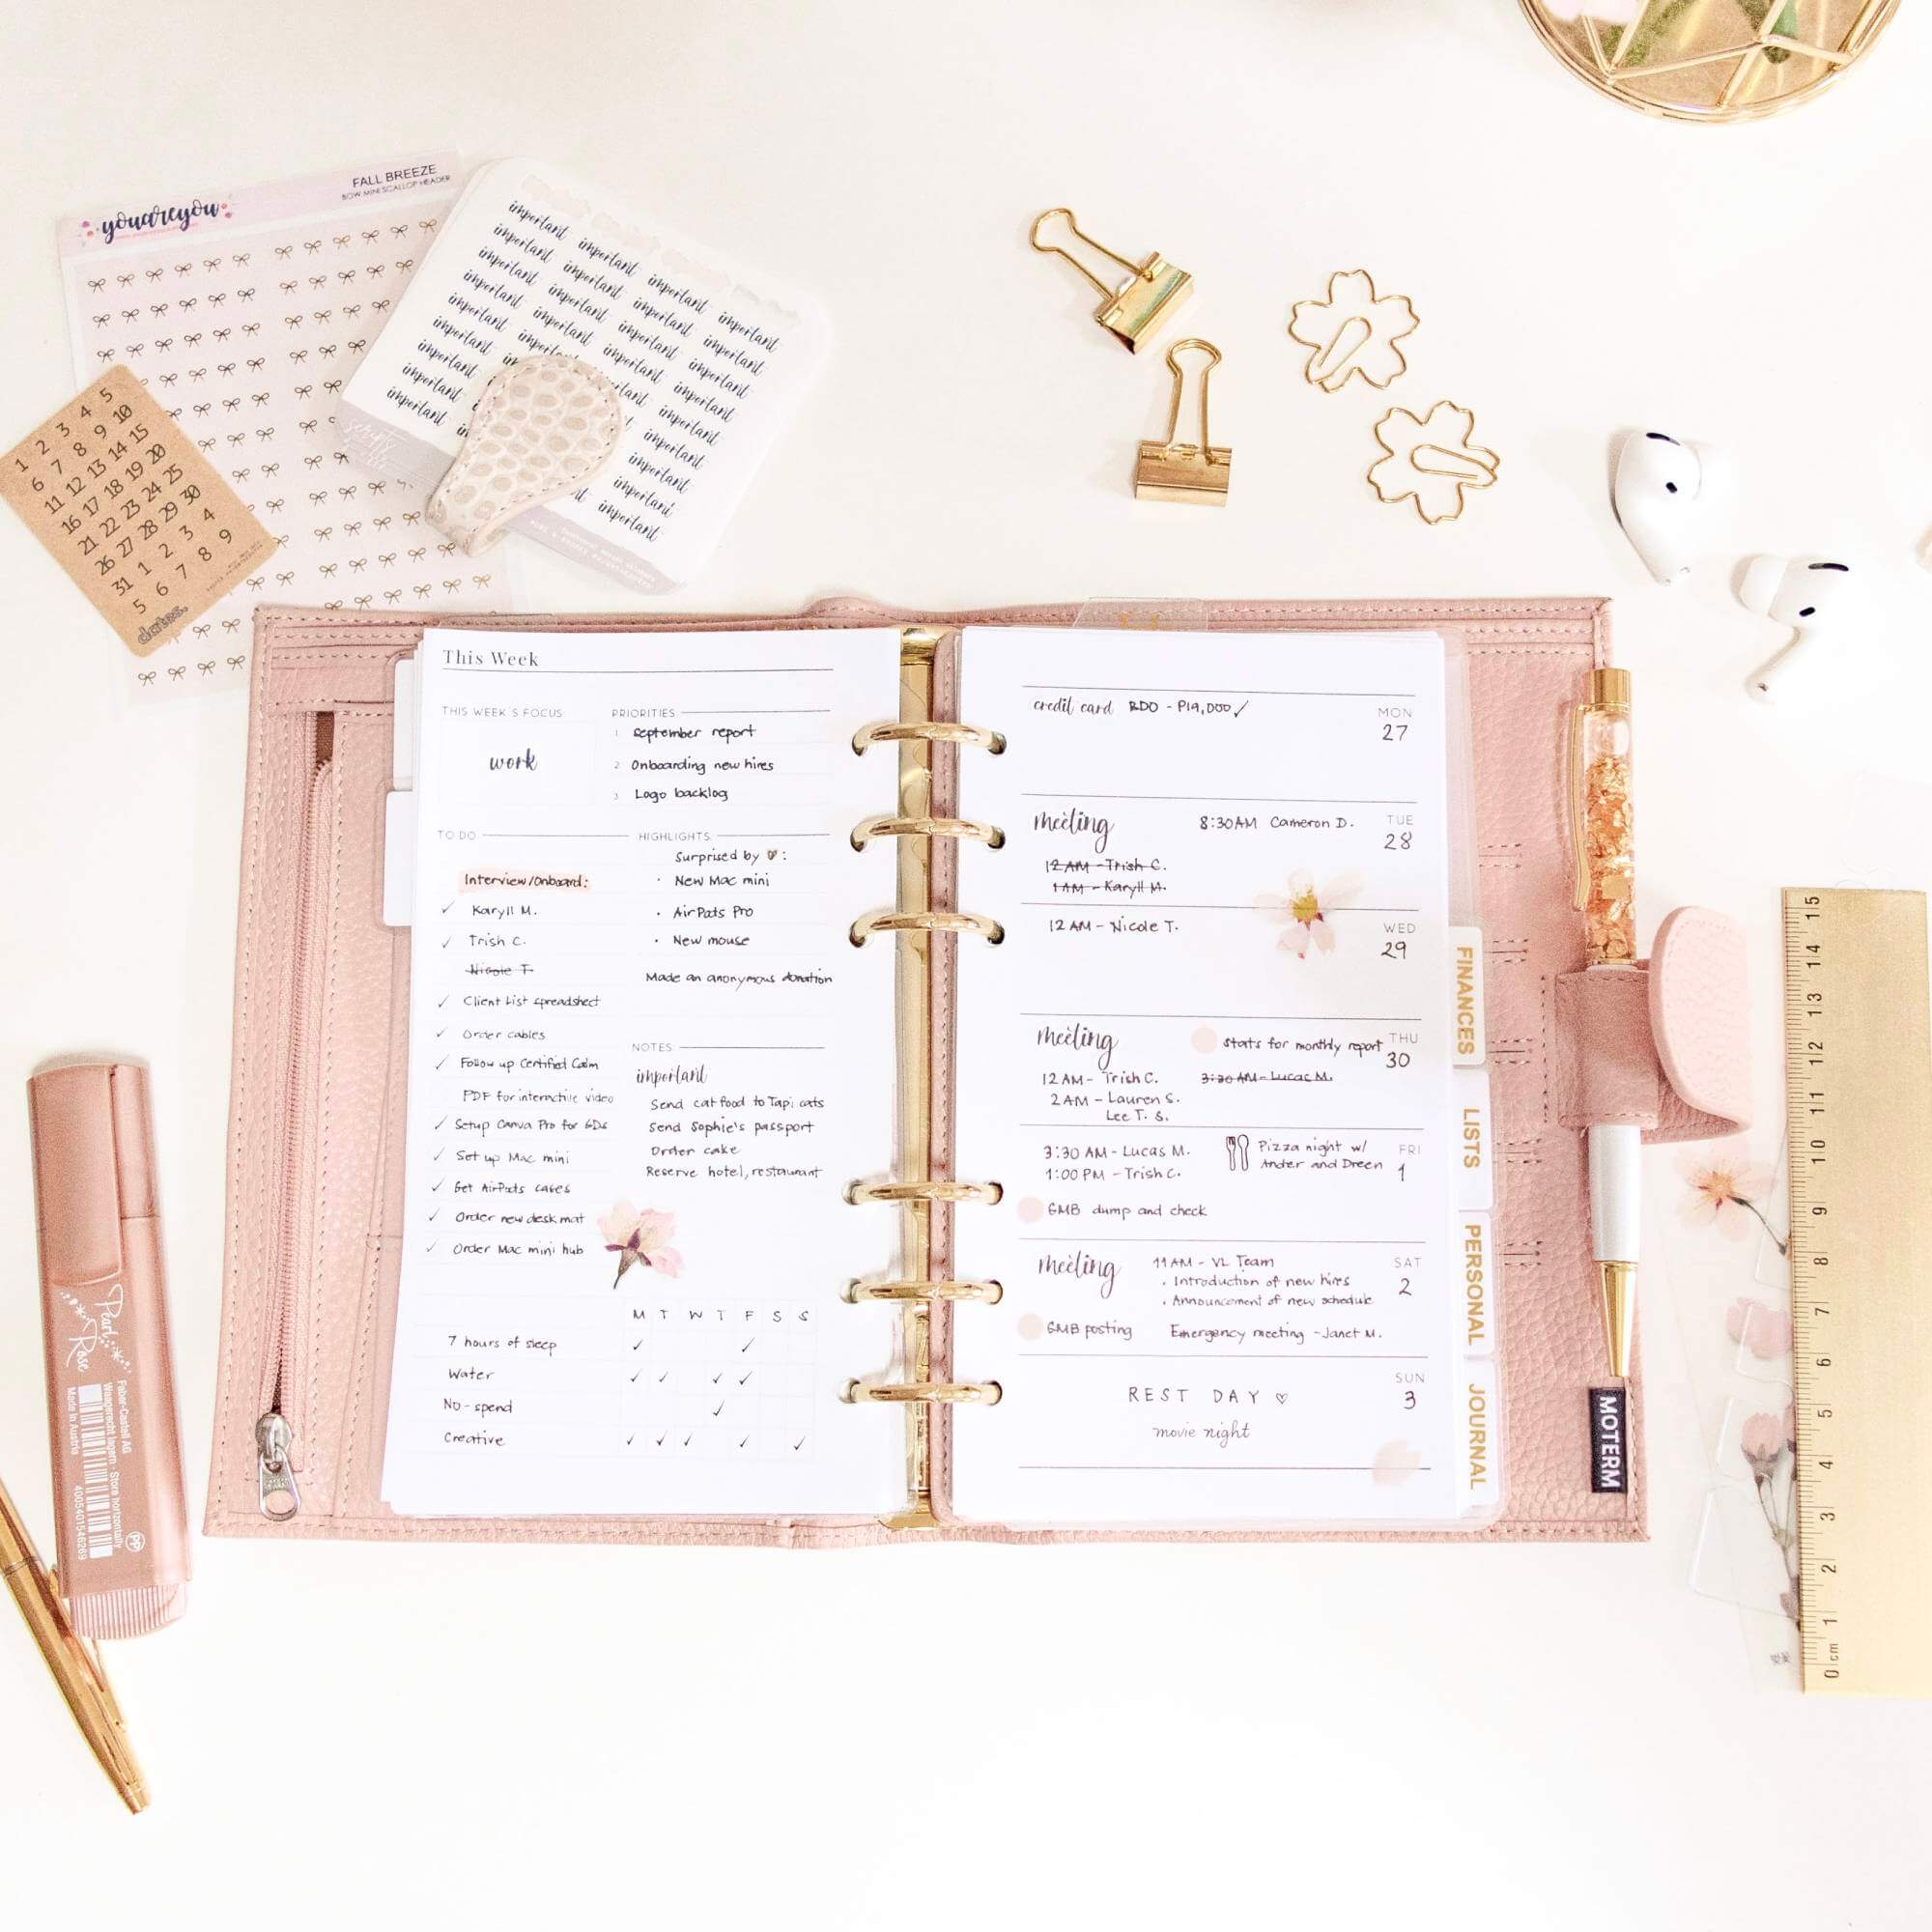 FALL BREEZE
BOW MINI SCALLOP HEADER
youareyou
important important important important
important important important important
important important important important
important important important important
important important important
important important important
important important
important important
important important
important
important
1 2 3 4 5
6 7 8 9 10
11 12 13 14 15
16 17 18 19 20
21 22 23 24 25
26 27 28 29 30
31 1 2 3 4
5 6 7 8 9
dates.
This Week
THIS WEEK'S FOCUS
work
PRIORITIES
1 September report
2 Onboarding new hires
3 Logo backlog
TO DO
Interview/Onboard:
✓ Karyll M.
✓ Trish C.
Nicole T.
✓ Client List spreadsheet
✓ Order cables
✓ Follow up Certified Calm
PDF for interactive video
✓ Setup Canva Pro for GDs
✓ Set up Mac mini
✓ Get AirPods cases
✓ Order new desk mat
✓ Order Mac mini hub
HIGHLIGHTS
Surprised by ♡:
· New Mac mini
· AirPods Pro
· New mouse
Made an anonymous donation
NOTES
important
Send cat food to Tapi cats
Send Sophie's passport
Order cake
Reserve hotel, restaurant
M T W T F S S
7 hours of sleep ✓ ✓
Water ✓ ✓ ✓ ✓
No-spend ✓
Creative ✓ ✓ ✓ ✓ ✓
credit card BDO - P19,000 ✓
MON
27
meeting 8:30AM Cameron D.
TUE
28
12 AM - Trish C.
1 AM - Karyll M.
12 AM - Nicole T.
WED
29
meeting
starts for monthly report
THU
30
12 AM - Trish C.
3:30 AM - Lucas M.
2 AM - Lauren S.
Lee T. S.
3:30 AM - Lucas M.
1:00 PM - Trish C.
Pizza night w/
Ander and Dreen
FRI
1
GMB dump and check
meeting 11 AM - VL Team
SAT
2
· Introduction of new hires
· Announcement of new schedule
GMB posting
Emergency meeting - Janet M.
REST DAY ♡
SUN
3
movie night
FINANCES
LISTS
PERSONAL
JOURNAL
MOTERM
Pearl Rose
Faber-Castell AG
Waagerecht lagern · Store horizontally
Made in Austria
4005401546269
PP
15
14
13
12
11
10
9
8
7
6
5
4
3
2
1
0 cm